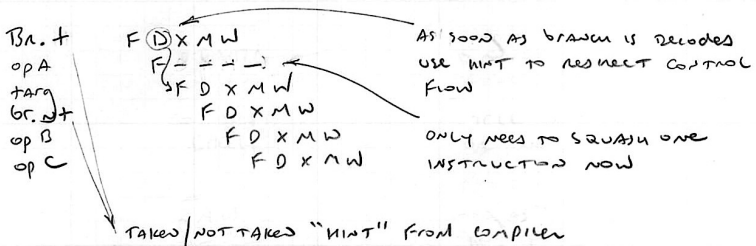 Br.t F D X M W
opA F - - - -
targ F D X M W
br.nt F D X M W
opB F D X M W
opC F D X M W
AS SOON AS BRANCH IS DECODED
USE HINT TO REDIRECT CONTROL
FLOW
ONLY NEED TO SQUASH ONE
INSTRUCTION NOW
TAKEN/NOT TAKEN "HINT" FROM COMPILER